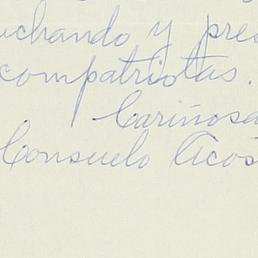 uchando y pre
compatriotas.
Cariñosa
Consuelo Acos